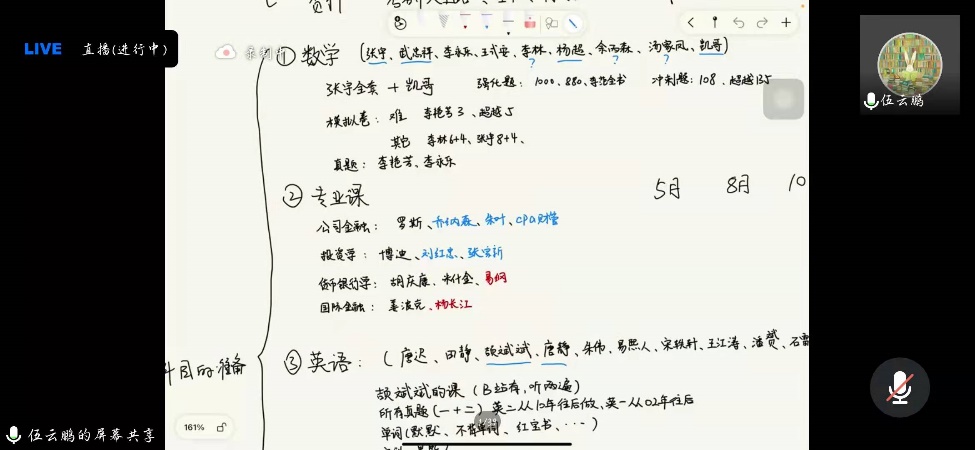 LIVE 直播(进行中)
① 数学 (张宇、武忠祥、李永乐、王式安、李林、杨超、余丙森、汤家凤、凯哥)
? ? ?
张宇全套 + 凯哥 强化题: 1000、880、李范全书 冲刺题: 108、超越135
模拟卷: 难 李艳芳3、超越5
其它 李林6+4、张宇8+4、
真题: 李艳芳、李永乐
② 专业课 5月 8月 10
公司金融: 罗斯、乔纳森、朱叶、cpa财管
投资学: 博迪、刘红忠、张宗新
货币银行学: 胡庆康、米什金、易纲
国际金融: 姜波克、杨长江
③ 英语: (唐迟、田静、颉斌斌、唐静、朱伟、易熙人、宋轶轩、王江涛、潘赟、石雷
颉斌斌的课 (B站有,听两遍)
所有真题 (一+二) 英二从10年往后做、英一从02年往后
单词(默默、不背单词、红宝书、…)
伍云鹏
161%
伍云鹏的屏幕共享